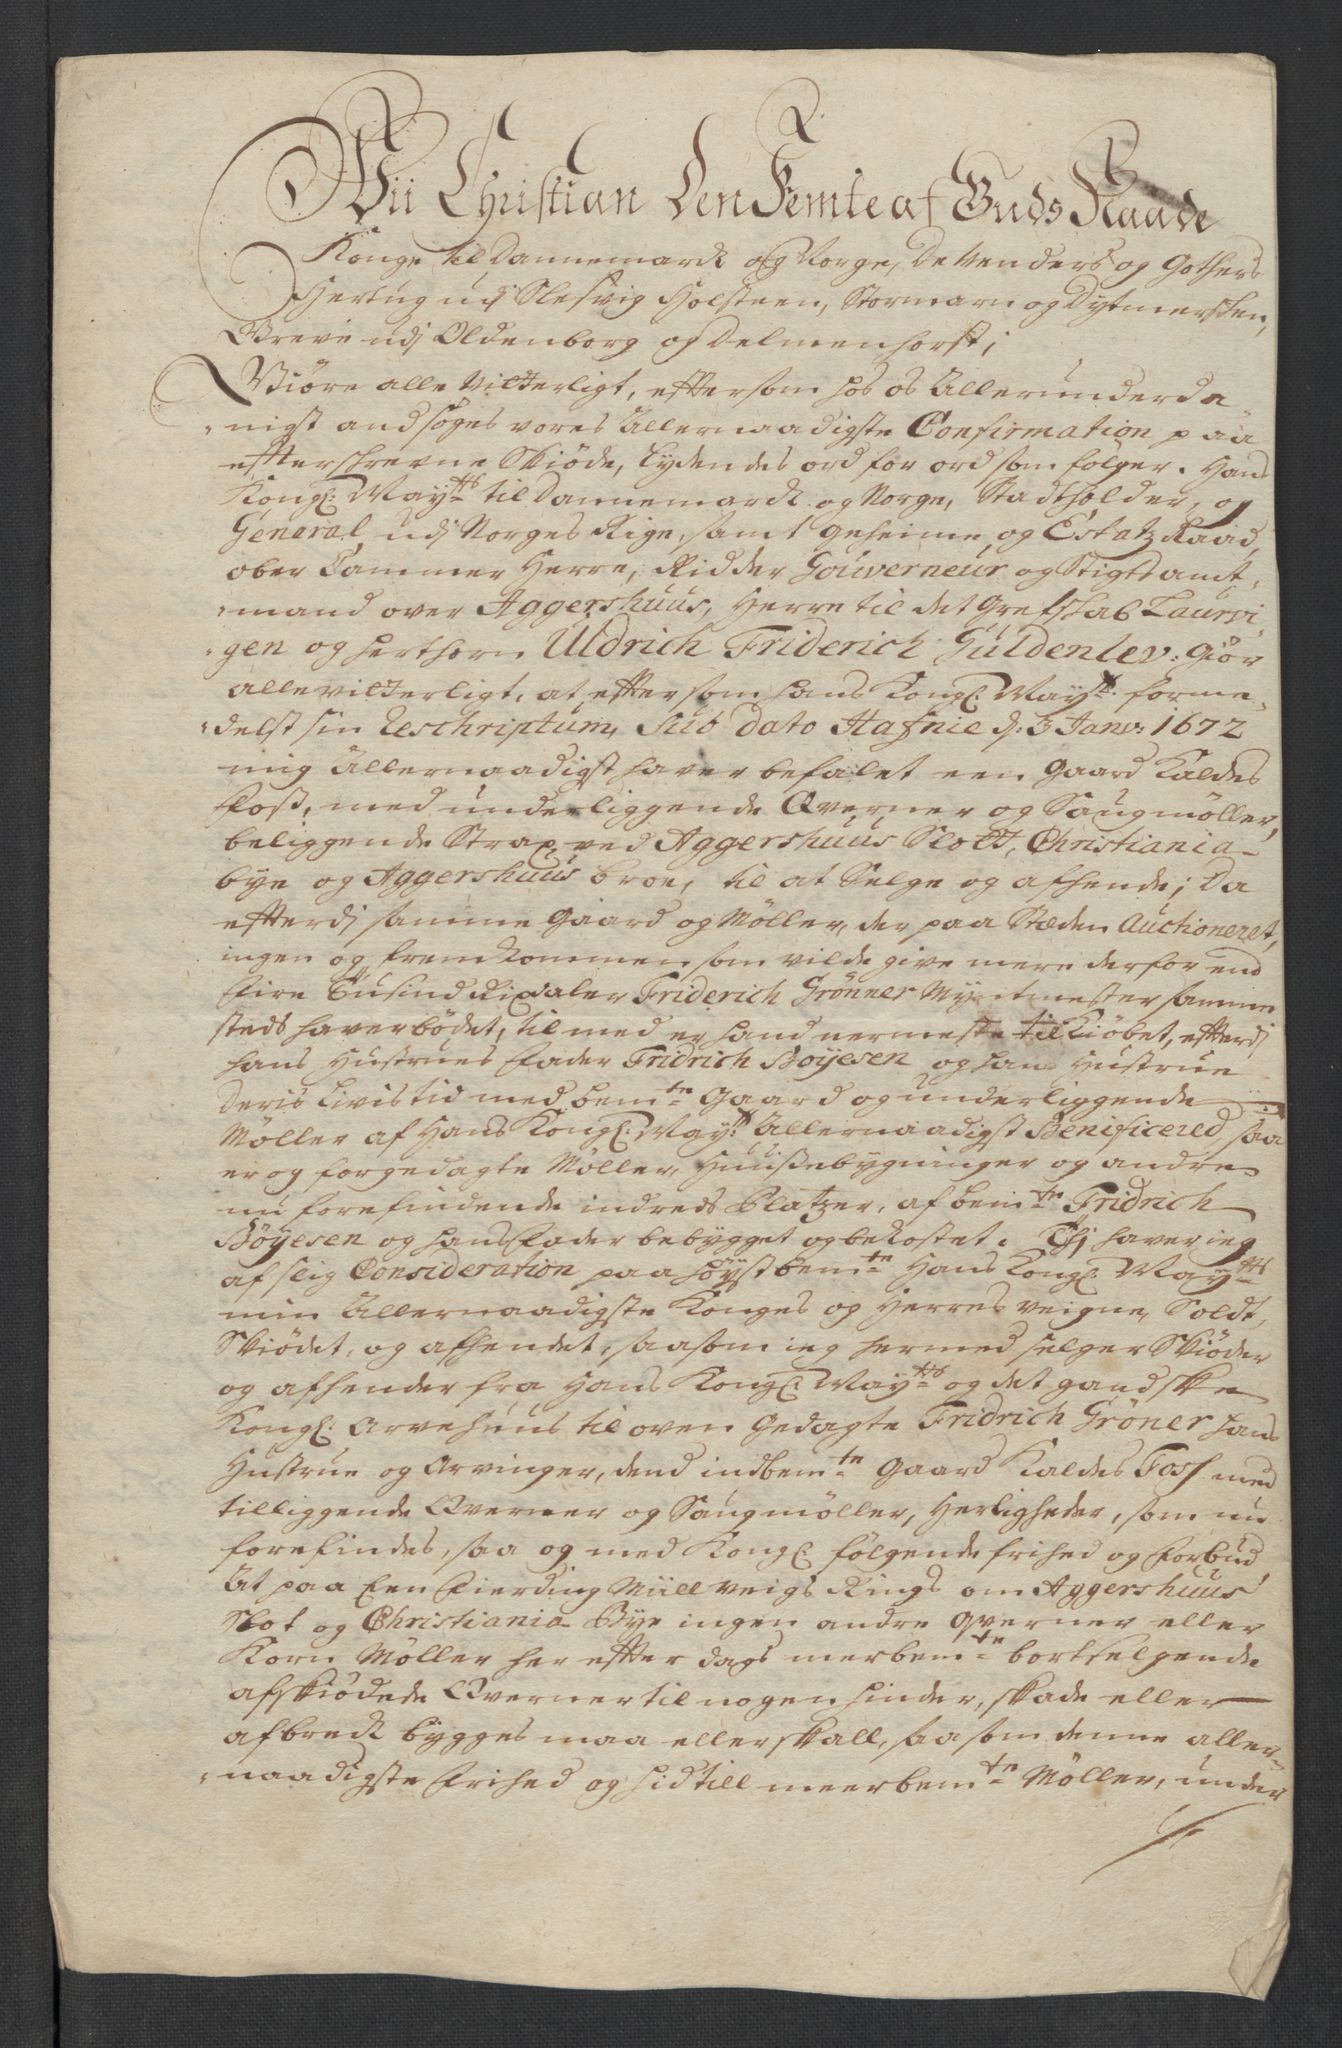 Wii Christian Den Femte af Guds Naade
Konge til Dannemarck og Norge, De Venders og Gothers
Hertug udj Slesvig Holsteen, Stormarn og Dytmersken,
Greve udj Oldenborg og Delmenhorst;
Giöre alle Vitterligt, eftersom hos os Allerunderdæ
nigst andsöges vores Allernaadigste Confirmation paa
efterskrevne Skiöde, Lydendes ord for ord som folger. Hans
Kongl: Mayts til Dannemarck og Norge, Stadtholder, og
General udj Norges Rige, samt geheime og Estatz Raad,
ober Cammer Herre, Ridder Gouverneur og Stigtsamt,
mand over Aggershuus, Herre til det Grefskab Laurvi,
gen og Herthorn Uldrich Friderich Guldenlev: Giör
alle vitterligt, at eftersom hans Kongl: Mayt: forme,
delst sin Reschriptum, sub dato Hafnie d: 3 Janv: 1672
mig Allernaadigst haver befalet een Gaard Kaldes
Foss, med underliggende Qverner og Saugmöller,
beliggende Strax ved Aggershuus Slott, Christiania
bye og Aggershuus broe, til at Selge og afhende; Da
efterdj samme Gaard og Möller, der paa Stæden Auctioneret,
ingen og fremkommen som vilde give mere derfor end
Fire Tusind Rixdaler Friderich Grönner Myntmester samme
steds haver bödet, til med er hand nermeste til Kiöbet, efterdj
hans Hustrues Fader Fridrich Boÿesen og hans Hustrue
Deris Livis tid med bemte Gaard og underliggende
Möller af Hans Kongl: Mayt: Allernaadigst Benificered, saa
er og forgedagte Möller, Huussebygninger og andre
nu forefindende indreds Platzer, af bemte Fridrich
Böÿesen og hans Fader bebygget og bekostet. Thj haver ieg
af slig Consideration paa höÿstbemte Hans Kongl: Mayts
min Allernaadigste Konges og Herres veigne, Soldt,
Skiödet, og afhendet, saasom ieg hermed selger Skiöder
og afhender fra Hans Kongl: Mayts og det gandske
Kongl: Arvehuus til oven Gedagte Fridrich Gröner hans
Hustrue og Arvinger, dend indbemte Gaard Kaldes Foss med
tilliggende Qverner og Saugmöller, Herligheder, som nu
forefindes, saa og med Kongl: fölgende frihed og forbud
At paa Een Fierding Miill veigs Rings om Aggershuus
Slot og Christiania Bye ingen andre Qverner eller
Korn Möller her efter dags merbemte bortselgende
afskiödede Qverner til nogen hinder, skade eller
afbreck bygges maa eller skall, saasom denne aller,
naadigste Frihed og hidtill meerbemte Möller, under